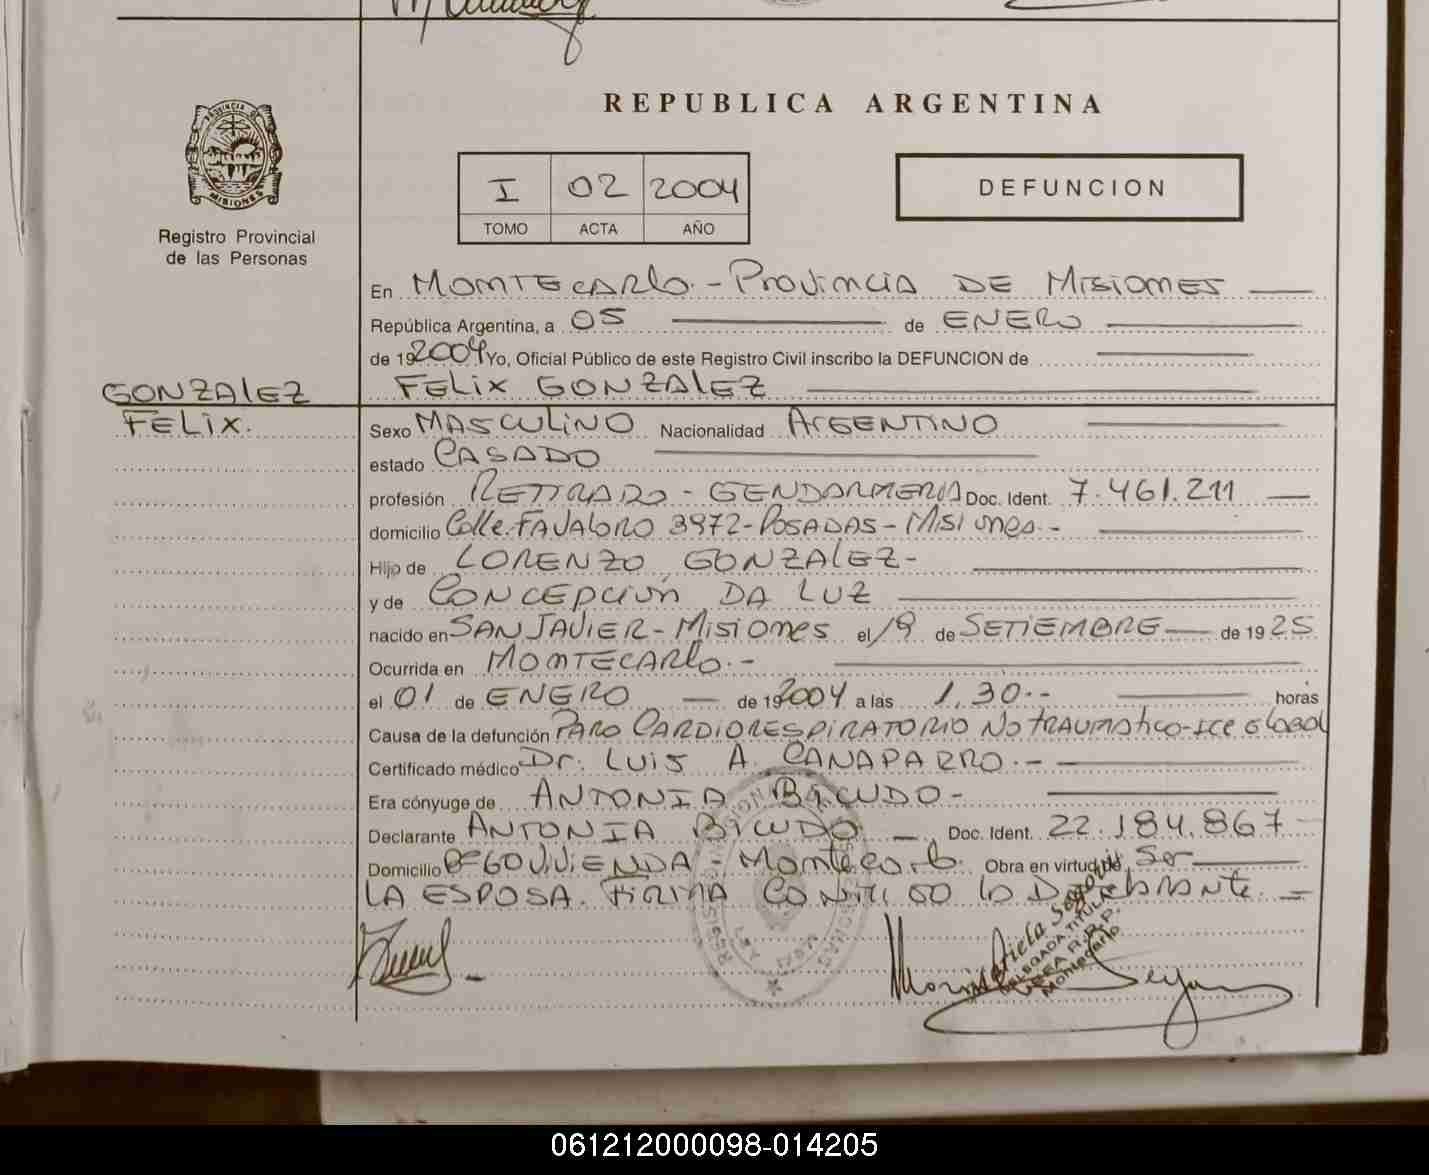 REPUBLICA ARGENTINA
PROVINCIA DE
MISIONES
Registro Provincial
de las Personas
I 02 2004
TOMO ACTA AÑO
DEFUNCION
En MONTECARLO.- PROVINCIA DE MISIONES
República Argentina, a 05 de ENERO
de 192004 Yo, Oficial Público de este Registro Civil inscribo la DEFUNCION de
GONZALEZ
FELIX.
FELIX GONZALEZ
Sexo MASCULINO Nacionalidad ARGENTINO
estado CASADO
profesión RETIRADO - GENDARMERIA Doc. Ident. 7.461.211
domicilio Calle FAVALORO 3972-POSADAS-Misiones.-
Hijo de LORENZO GONZALEZ-
y de CONCEPCION DA LUZ
nacido en SAN JAVIER - Misiones el 19 de SETIEMBRE de 1925
Ocurrida en MONTECARLO.-
el 01 de ENERO de 192004 a las 1,30.- horas
Causa de la defunción PARO CARDIORESPIRATORIO NO TRAUMATICO-ICC GLOBAL
Certificado médico Dr. LUIS A. CANAPARRO.-
Era cónyuge de ANTONIA BICUDO-
Declarante ANTONIA BICUDO Doc. Ident. 22.184.867
Domicilio Bº GOVIVIENDA - Montecarlo. Obra en virtud de Ser
LA ESPOSA. FIRMA CONMIGO LA DECLARANTE.
DELEGADA TITULAR
Montecarlo
061212000098-014205